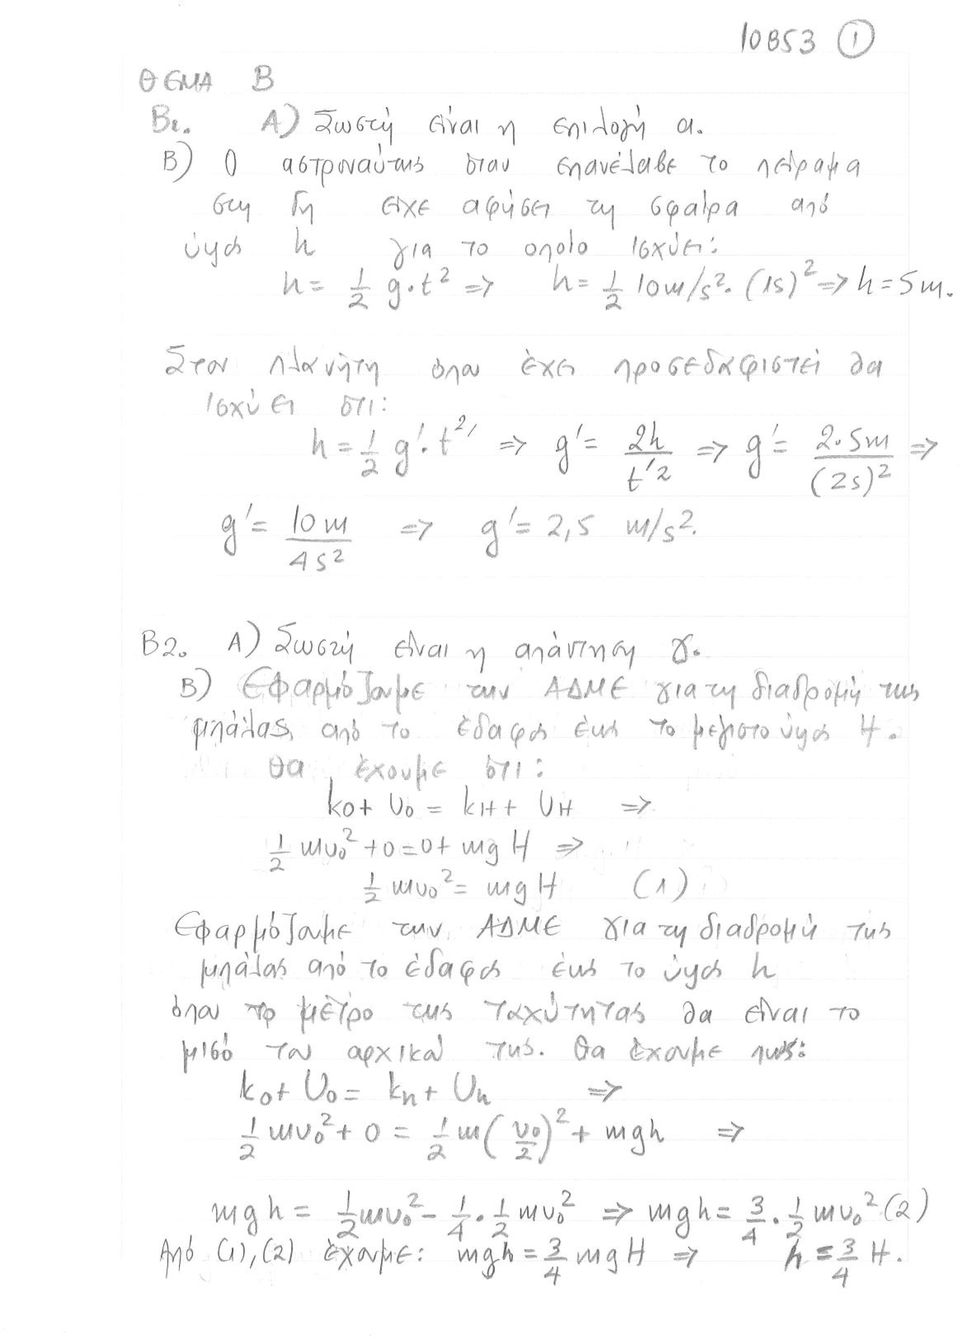 10853 ①
ΘΕΜΑ Β
Β1. Α) Σωστή είναι η επιλογή α.
Β) Ο αστροναύτης όταν επανέλαβε το πείραμα
στη Γη είχε αφήσει τη σφαίρα από
ύψος h για το οποίο ισχύει:
h = 1/2 g·t² => h = 1/2 10m/s²· (1s)² => h = 5m.
Στον πλανήτη όπου έχει προσεδαφιστεί θα
ισχύει ότι:
h = 1/2 g'·t²' => g' = 2h/t'² => g' = 2·5m/(2s)² =>
g' = 10m/4s² => g' = 2,5 m/s².
Β2. Α) Σωστή είναι η απάντηση γ.
Β) Εφαρμόζουμε την ΑΔΜΕ για τη διαδρομή της
μπάλας, από το έδαφος έως το μέγιστο ύψος H.
Θα έχουμε ότι:
k₀ + U₀ = k_H + U_H =>
1/2 mυ₀² + 0 = 0 + mgH =>
1/2 mυ₀² = mgH (1)
Εφαρμόζουμε την ΑΔΜΕ για τη διαδρομή της
μπάλας από το έδαφος έως το ύψος h
όπου το μέτρο της ταχύτητας θα είναι το
μισό του αρχικού της. Θα έχουμε πως:
k₀ + U₀ = k_h + U_h =>
1/2 mυ₀² + 0 = 1/2 m(υ₀/2)² + mgh =>
mgh = 1/2 mυ₀² - 1/4 · 1/2 mυ₀² => mgh = 3/4 · 1/2 mυ₀² (2)
Από (1), (2) έχουμε: mgh = 3/4 mgH => h = 3/4 H.